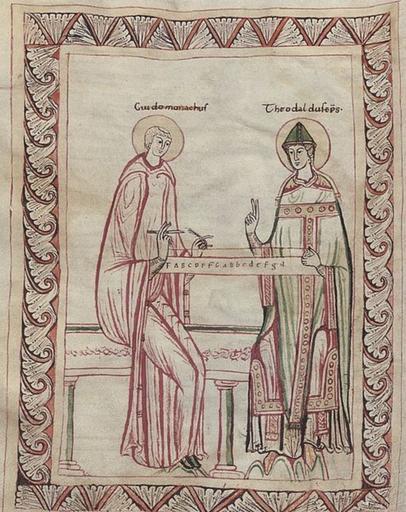 Guido monachuſ
Theodalduſ ep̄s.
Γ A B C D E F G a b